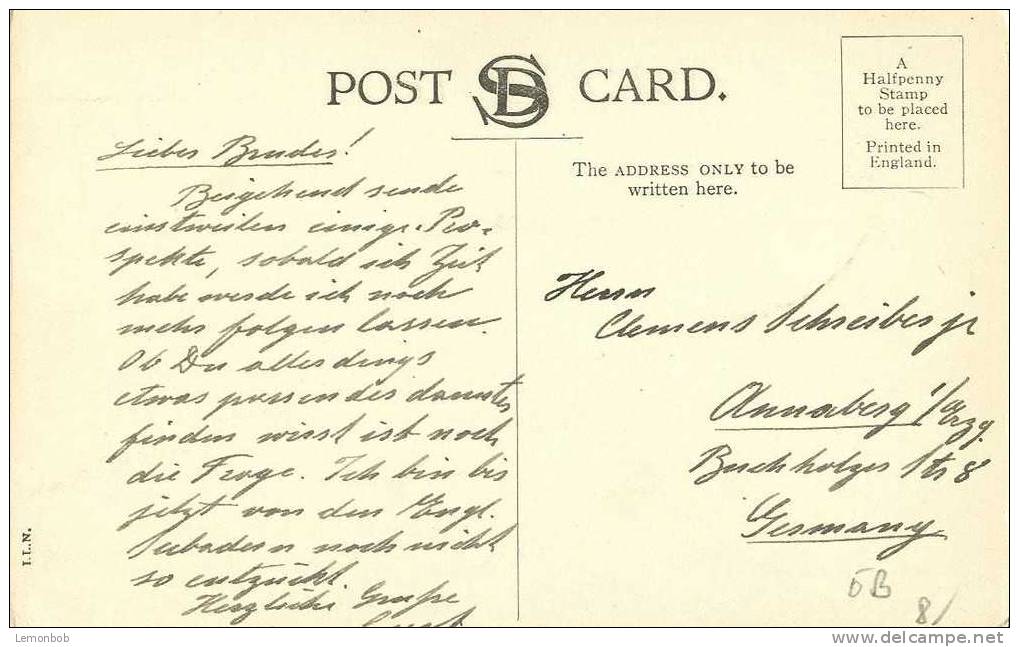 POST SD CARD.
A
Halfpenny
Stamp
to be placed
here.
Printed in
England.
The ADDRESS ONLY to be
written here.
Lieber Bruder!
Beigehend sende
einstweilen einige Pro-
spekte, sobald ich Zeit
habe werde ich noch
mehr folgen lassen.
Ob Du allerdings
etwas passendes darunter
finden wirst ist noch
die Frage. Ich bin bis
jetzt von den Engl.
Seebädern noch nicht
so entzückt.
Herzliche Grüße
Herrn
Clemens Schreiber jr
Annaberg i/Erzg.
Buchholzer Str 8
Germany
I.L.N.
ÖB
8/
Lemonbob
www.delcampe.net